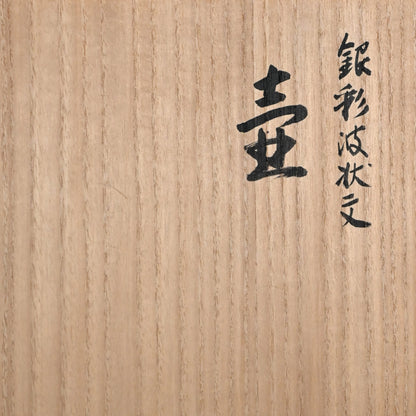 銀彩波状文
壷